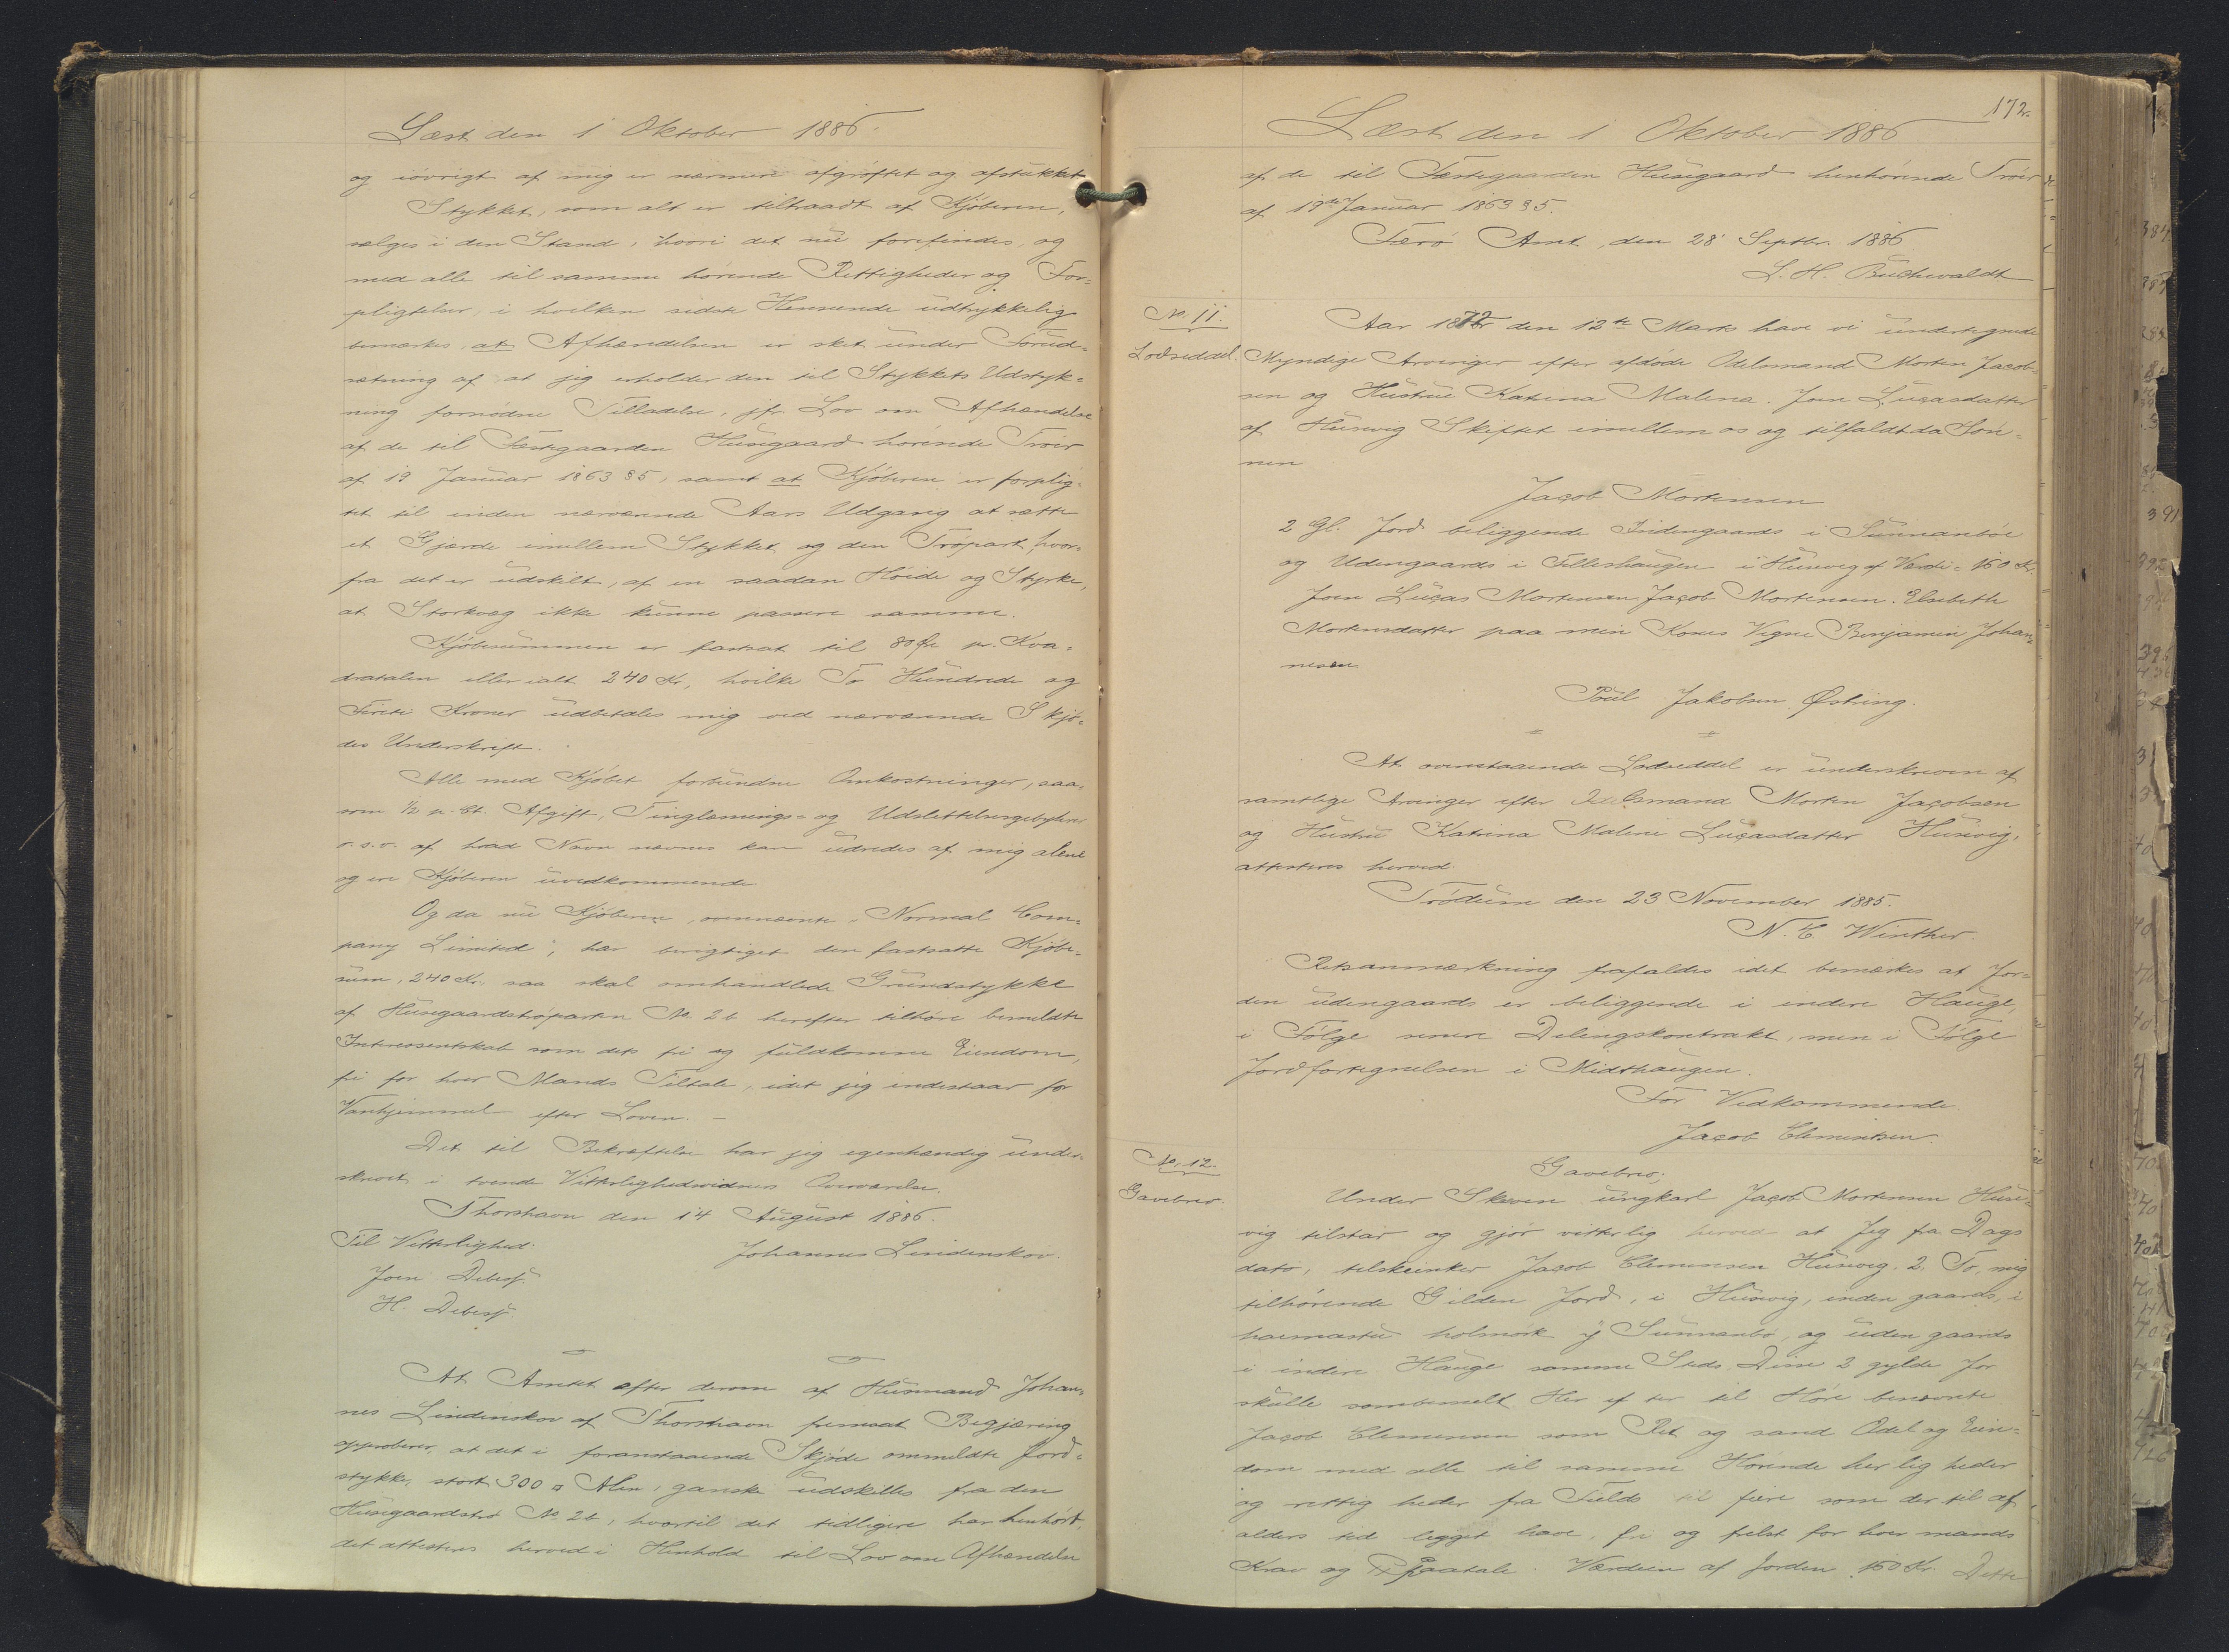 Læst den 1 Oktober 1886.
og iøvrigt af mig er nærmere afgrøftet og afstukket
Stykket, som alt er tiltraadt af Kjøberen,
sælges i den Stand, hvori det nu forefindes, og
med alle til samme hørende Rettigheder og For-
pligtelser, i hvilken sidste Henseende udtrykkelig
bemærkes, at Afhændelsen er sket under Forud-
sætning af at jeg erholder den til Stykkets Udstyk-
ning fornødne Tilladelse, jfr. Lov om Afhændelse
af de til Fæstegaarden Husegaard hørende Trøer
af 19 Januar 1863 § 5, samt at Kjøberen er forplig-
tet til inden nærværende Aars Udgang at sætte
et Gjærde imellem Stykket og den Trøpart, hvor-
fra det er udskilt, af en saadan Høide og Styrke,
at Storkvæg ikke kunne passere samme.
Kjøbesummen er fastsat til 80 Øre pr. Kva-
dratalen eller ialt 240 Kr., hvilke To Hundrede og
Fireti Kroner udbetales mig ved nærværende Skjø-
des Underskrift.
Alle med Kjøbet forbundne Omkostninger, saa-
som ½ p. Ct. Afgift, Tinglæsnings- og Udslettelsesgebyhrer
o.s.v. af hvad Navn nævnes kan udredes af mig alene
og ere Kjøberen uvedkommende
Og da nu Kjøberen, ovennævnte "Normal Com-
pany Limited", har berigtiget den fastsatte Kjøbe-
sum, 240 Kr., saa skal omhandlede Grundstykke
af Husegaardstrøparten No. 2b herefter tilhøre bemeldte
Interessentskab som dets fri og fuldkomne Eiendom,
fri for hver Mands Tiltale, idet jeg indestaar for
Vanhjemmel efter Loven. -
Det til Bekræftelse har jeg egenhændig under-
skrevet i tvende Vitterlighedsvidners Overværelse.
Thorshavn den 14 August 1886.
Til Vitterlighed:
Johannes Lindenskov.
Joen Debesf.
H. Debesf.
At Amtet efter derom af Husmand Johan-
nes Lindenskov af Thorshavn fremsat Begjæring
approberer, at det i foranstaaende Skjøde ommeldte Jord-
stykke, stort 300 □ Alen, ganske udskilles fra den
Husegaardstrø No. 2b, hvortil det tidligere har henhørt,
det attesteres herved i Henhold til Lov om Afhændelse
172.
Læst den 1 Oktober 1886
af de til Fæstegaarden Husegaard henhørende Trøer
af 19de Januar 1863 § 5.
Færø Amt, den 28' Septbr. 1886
L. H. Buchwaldt
No. 11.
Lodseddel.
Aar 1872 den 12te Marts have vi undertegnede
Myndige Arvinger efter afdøde Odelsmand Morten Jacob-
sen og Hustru Katrina Malena. Joen Lucasdatter
af Husevig Skiftet imellem os og tilfaldt da Søn-
nen
Jacob Mortensen
2 Gl. Jord beliggende Indengaards i Sunnanbøe
og Udengaards i Tilleshaugen i Husevig af Værdi = 160 Kr.
Joen Lucas Mortensen Jacob Mortensen. Elsebeth
Mortensdatter paa min Kones Vegne Benjamin Johan-
nesen
Poul Jakobsen Østring.
At ovenstaaende Lodseddel er underskreven af
samtlige Arvinger efter Odelsmand Morten Jacobsen
og Hustru Katrina Malene Lucasdatter Husevig,
attesteres herved.
Trødum den 23 November 1885.
N. C. Winther.
Retsanmærkning frafaldes idet bemærkes at Jor-
den udengaards er beliggende i indere Hauge,
i Følge senere Delingskontrakt, men i Følge
Jordfortegnelsen i Midthaugen.
For Vedkommende
Jacob Clementsen.
No. 12.
Gavebrev.
Gavebrev;
Under Skreven ungkarl Jacob Mortensen Huse-
vig tilstaar og gjør vitterlig herved at Jeg fra Dags
dato, tilskeinker Jacob Clemensen Husevig, 2 To, mig
tilhørende Gilden Jord, i Husevig, inden gaards, i
holmørk y Sunnanbø, og uden gaards
i indere Hauge samme Steds, Dise 2 gylde Jor
skulle sombemelt Her ef ter til Høre benævnte
Jacob Clemensen som Ret og sand Odel og Eien-
dom med alle til samme Hørende her lig heder
og rettig heder fra Fields til fiere som der til af
alders tid legget have, fri og frelst for hver mands
Krav og Paatale. Værdien af Jorden 160 Kr. Dette